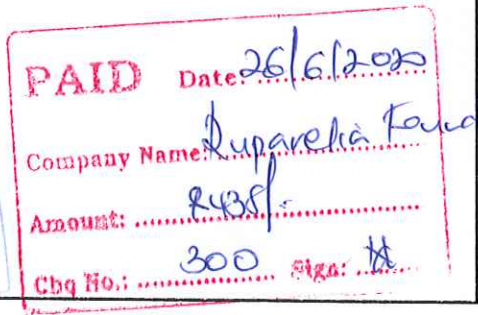 PAID Date: 26/6/2020
Company Name: Ruparelia Foun
Amount: 2435/-
Chq No.: 300 Sign: